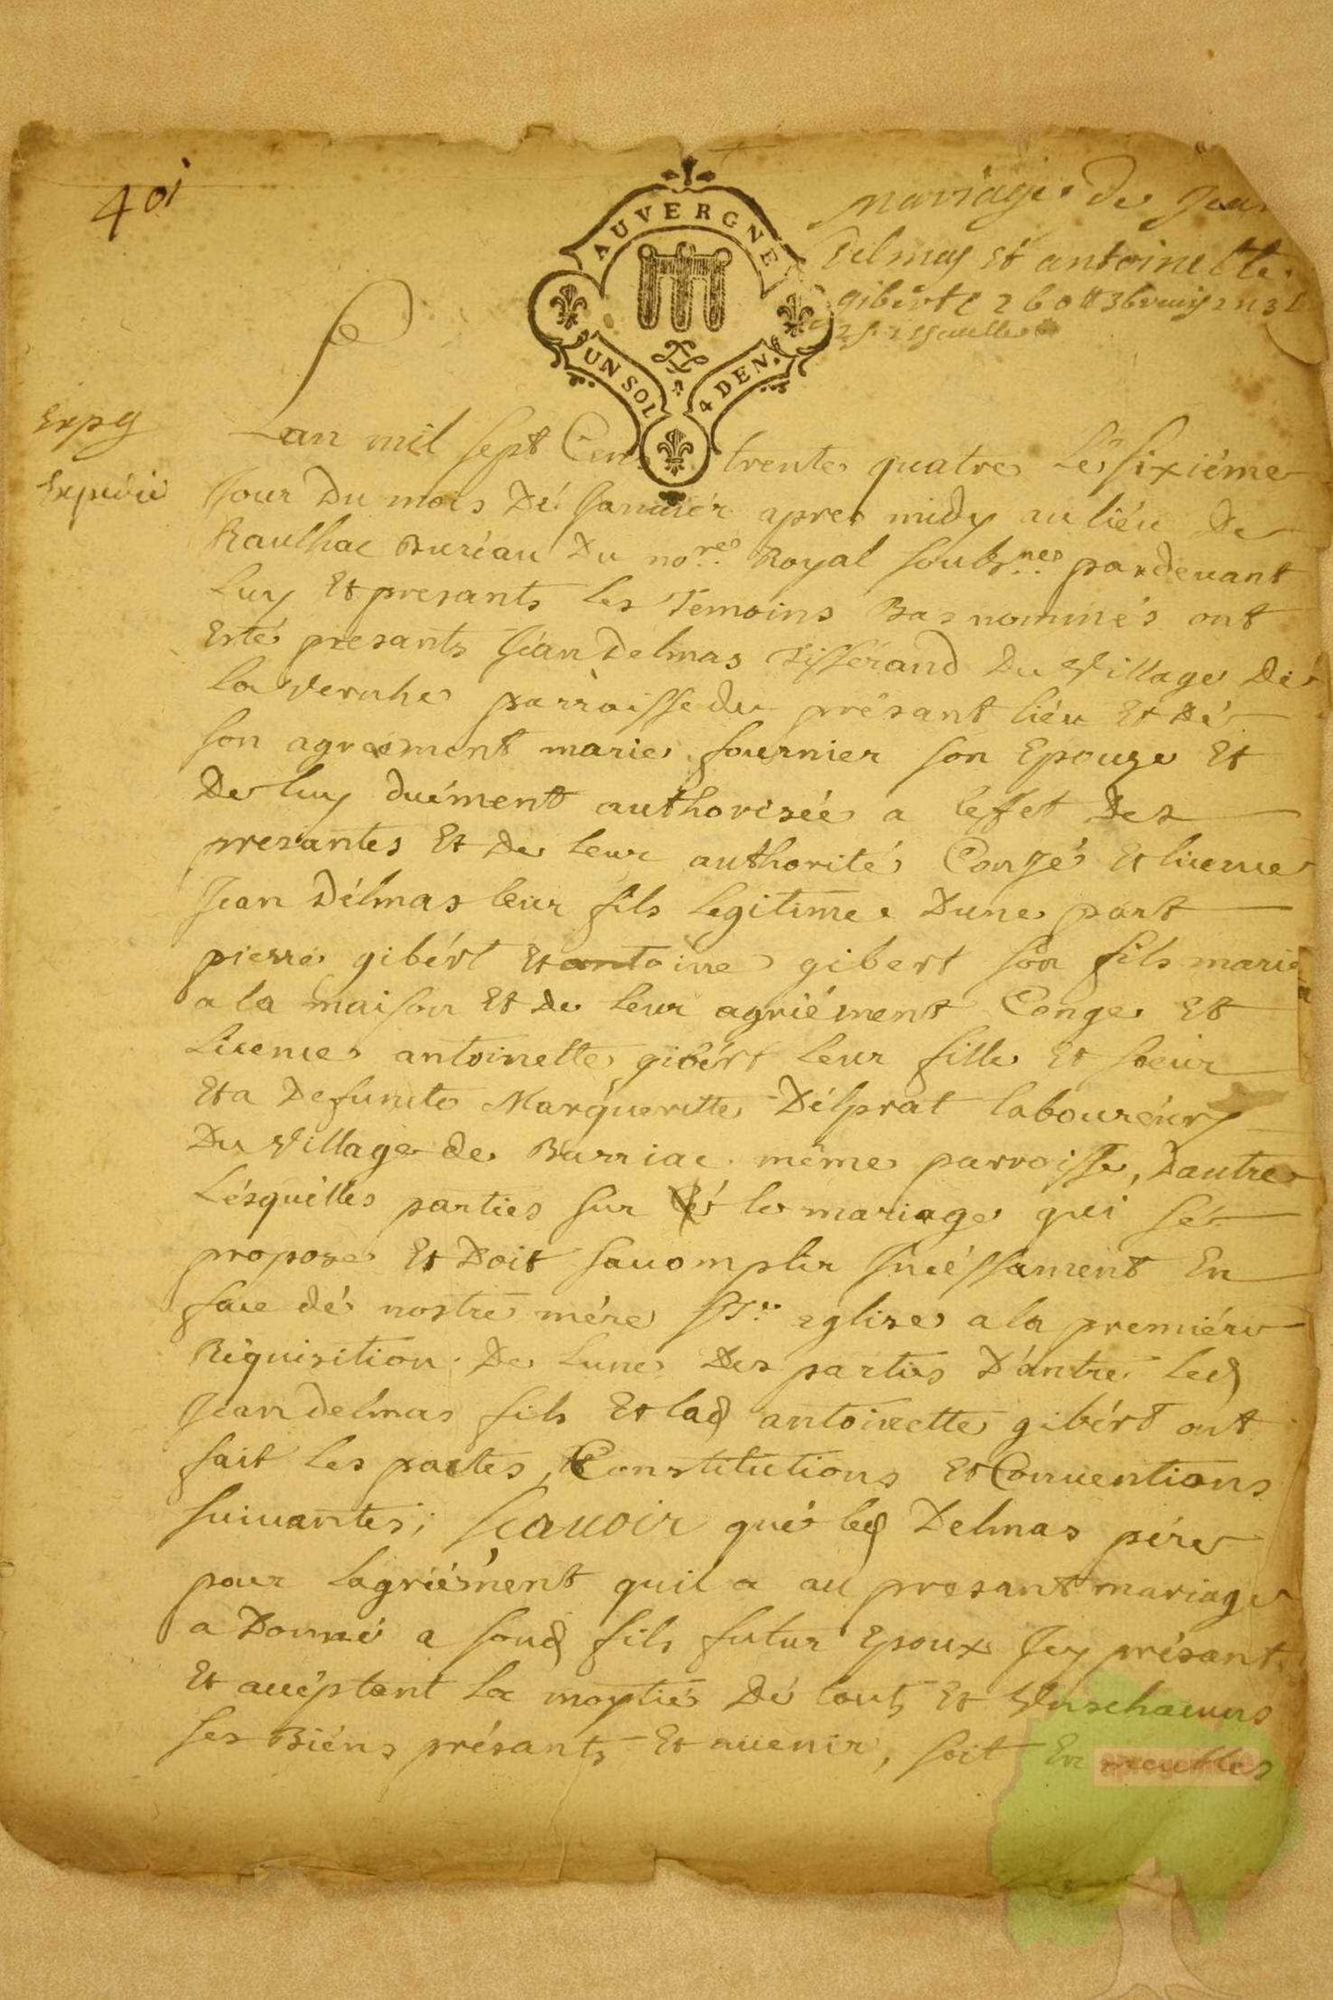 401
mariage de Jean
Delmas Et antoinette
gibert
AUVERGNE
UN SOL 4 DEN.
Expg
Expedié
Lan mil sept Cens trente quatre Le sixiéme
Jour Du mois Dé Janvier apres midy au liéu De
Raulhac Buréau Du no.res Royal soubs.nes pardevant
Luy Et presants Les Témoins Bas nommés ont
Estés presants Jéan Delmas Tisserand Du Village Dé
La Vernhe parroisse du présant liéu Et Dé
son agreément marie fournier son Epouze Et
De luy duément authorisée a leffet Des
presantes Et De leur authorité Congé Et licence
Jean Délmas leur fils Legitime Dune part
pierre gibért Et antoine gibert son fils marié
a la maison Et De leur agriément Conge Et
Licence antoinette gibért leur fille Et soeur
Et a Defuncte Margueritte Délprat laboureurs
Du Village de Burriac méme parroisse, Dautre
Lésquélles parties sur le mariage qui sé
propose Et Doit saccomplir Incéssament En
face dé nostre mére Ste eglise a la premiére
Réquisition De Lune Des parties D'antre Led
Jean delmas fils Et lad antoinette gibért ont
fait les pactes, Constitutions Et Conventions
suivantes; scavoir qué led Delmas pére
pour Lagriément quil a au presant mariage
a Donné a soud fils futur Epoux Icy présant
Et accéptant La moytié Dé touts Et Unschacuns
ses Biéns présants Et avenir, soit En meubles